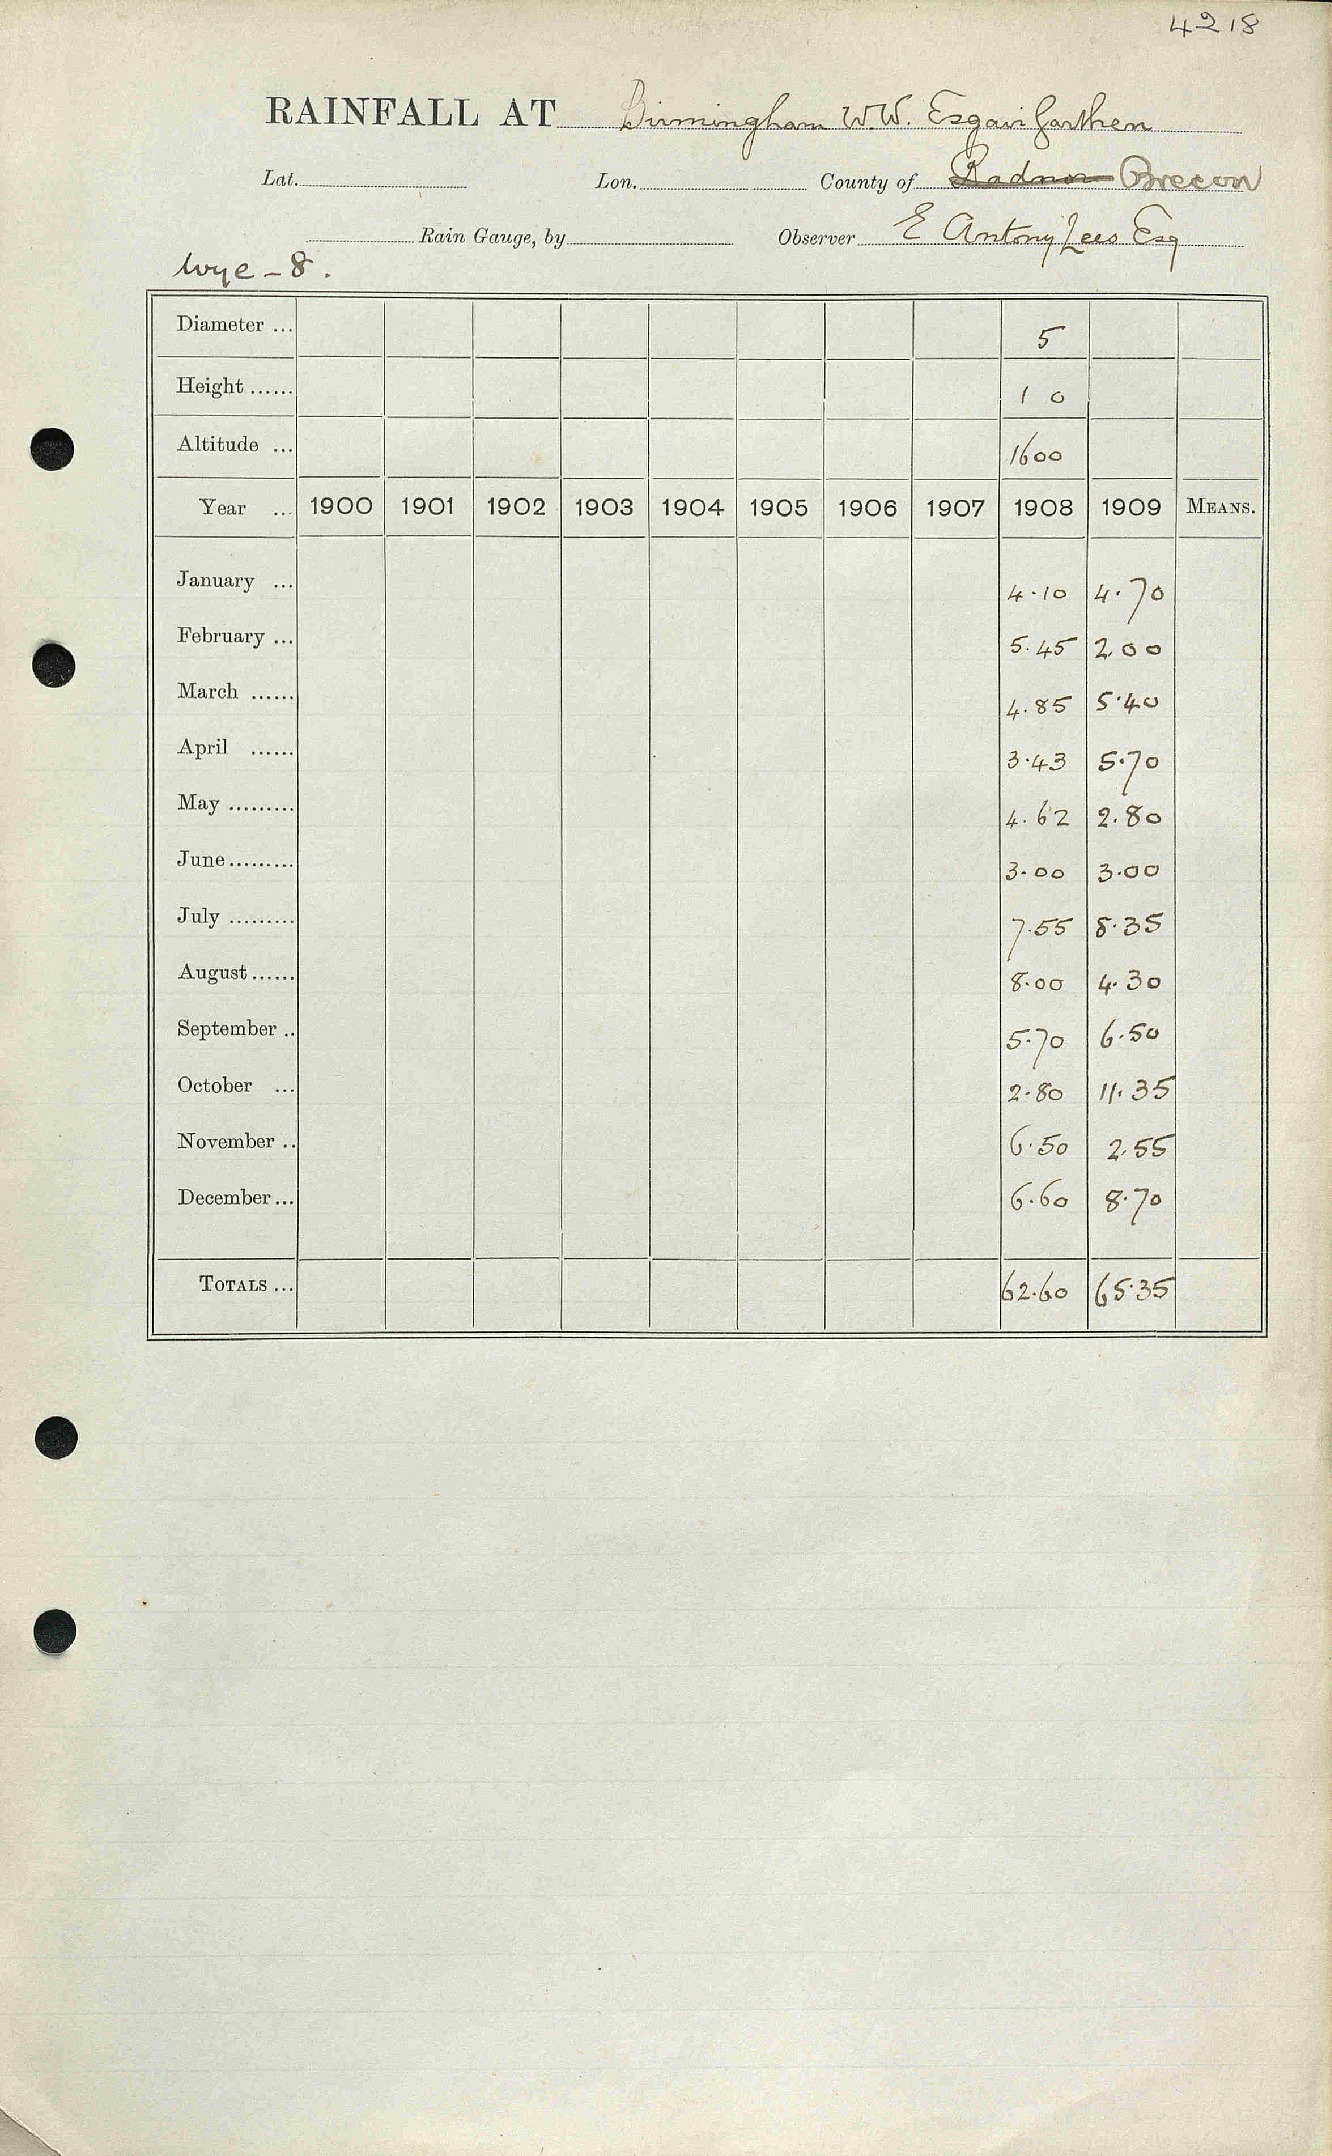 4218
RAINFALL AT Birmingham W.W. Esgair Garthen
Lat. Lon. County of Radnor Brecon
Rain Gauge, by Observer E Antony Lees Esq
Wye - 8.
Diameter ... 5
Height ...... 1 0
Altitude ... 1600
Year ... 1900 1901 1902 1903 1904 1905 1906 1907 1908 1909 MEANS.
January ... 4.10 4.70
February ... 5.45 2 00
March ...... 4.85 5.40
April ...... 3.43 5.70
May ......... 4.62 2.80
June ......... 3.00 3.00
July ......... 7.55 8.35
August ...... 8.00 4.30
September .. 5.70 6.50
October ... 2.80 11.35
November .. 6.50 2.55
December ... 6.60 8.70
TOTALS ... 62.60 65.35